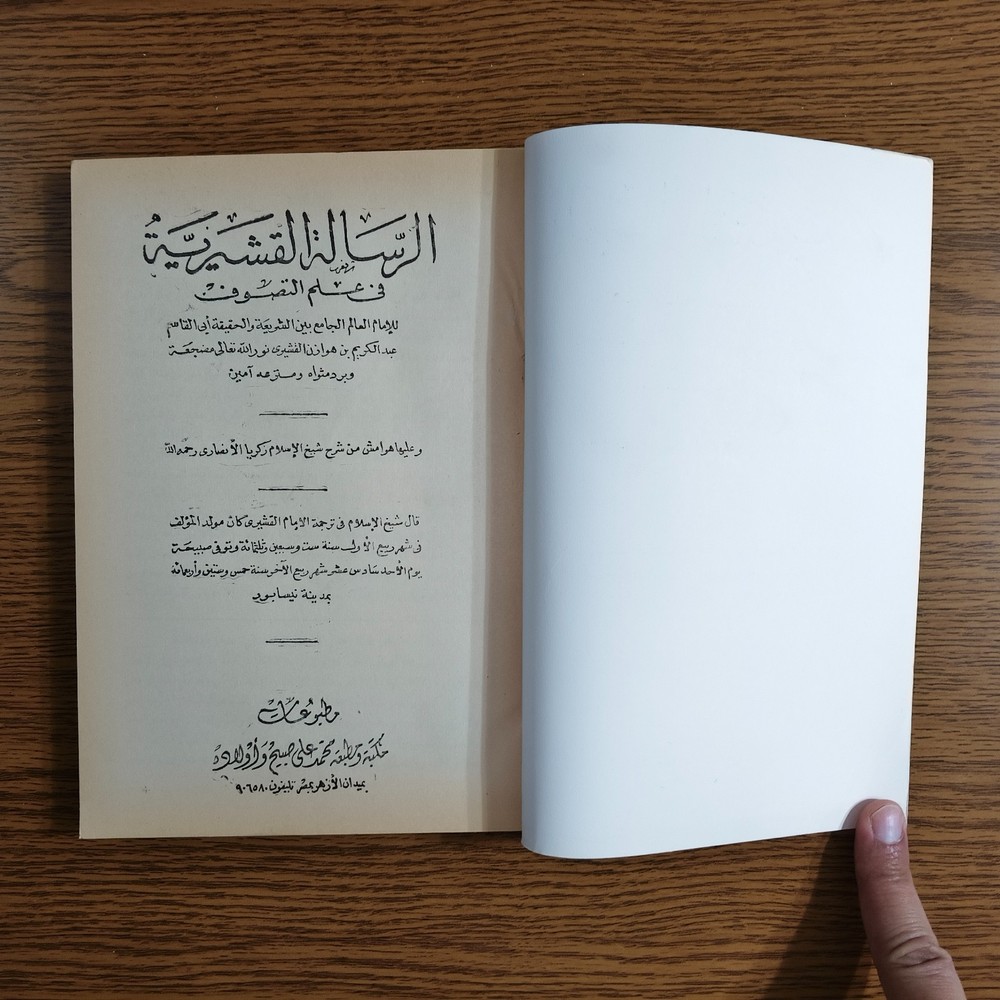 الرِّسَالة القشَيريَّةُ
في علم التصوف
للإمام العالم الجامع بين الشريعة والحقيقة أبى القاسم
عبد الكريم بن هوازن القشيرى نور الله تعالى مضجعة
وبرد مثواه ومنزعه آمين
وعليها هوامش من شرح شيخ الإسلام زكريا الأنصارى رحمه الله
قال شيخ الإسلام فى ترجمة الإمام القشيرى كان مولد المؤلف
فى شهر ربيع الأول سنة ست وسبعين وثلثمائة وتوفى صبيحة
يوم الأحد سادس عشر شهر ربيع الآخر سنة خمس وستين وأربعمائة
بمدينة نيسابور
مطبوعات
مكتبة ومطبعة محمد على صبيح وأولاده
بميدان الأزهر بمصر تليفون ٩٠٦٥٨٠